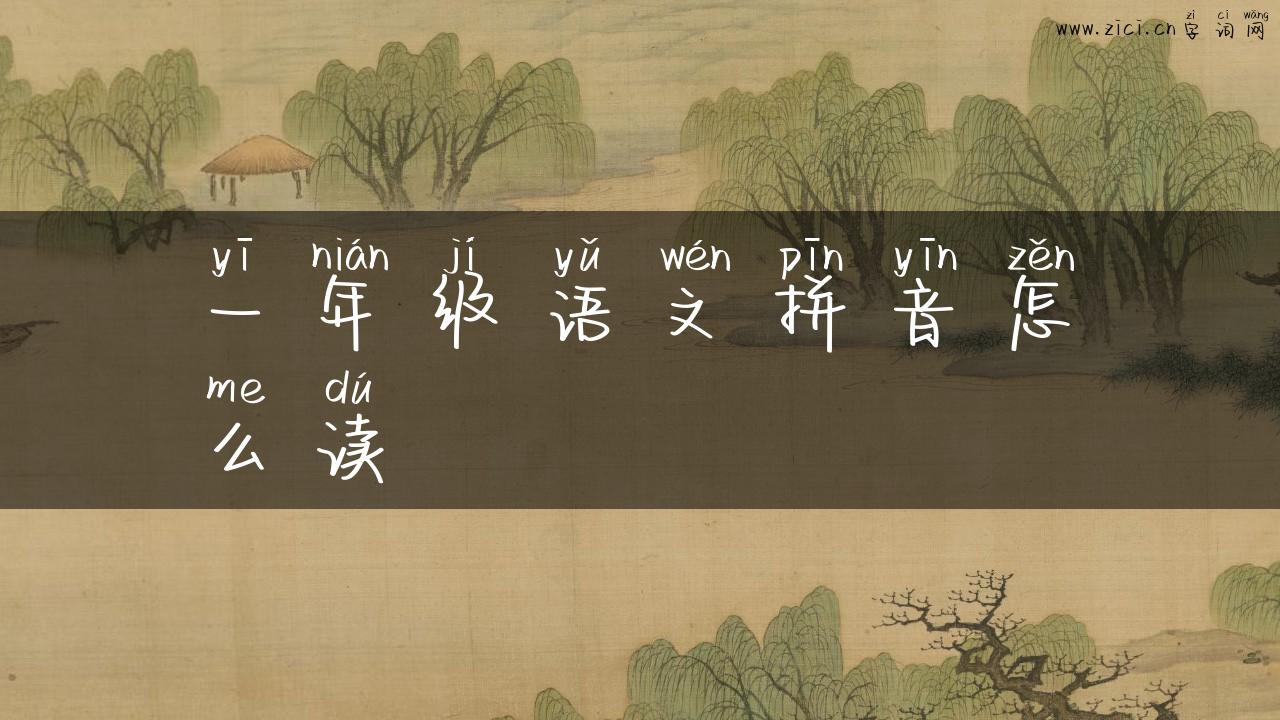 zì cí wǎng
www.zici.cn 字 词 网
yī nián jí yǔ wén pīn yīn zěn
一 年 级 语 文 拼 音 怎
me dú
么 读